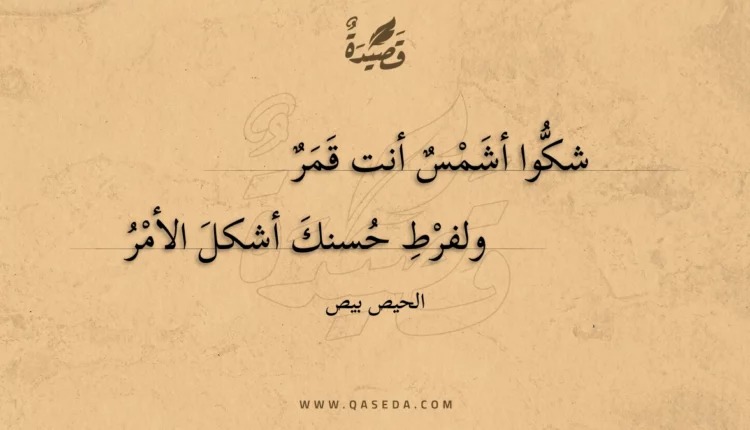 قَصِيدَةٌ
شكُّوا أشَمْسٌ أنت قَمَرٌ
ولفرْطِ حُسنكَ أشكلَ الأمْرُ
الحيص بيص
WWW.QASEDA.COM